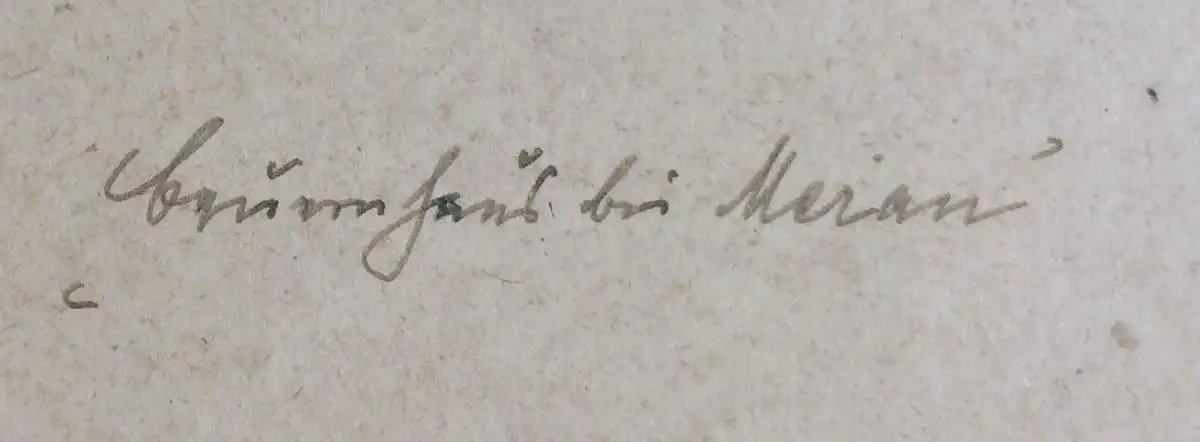 Brunnhaus bei Meran